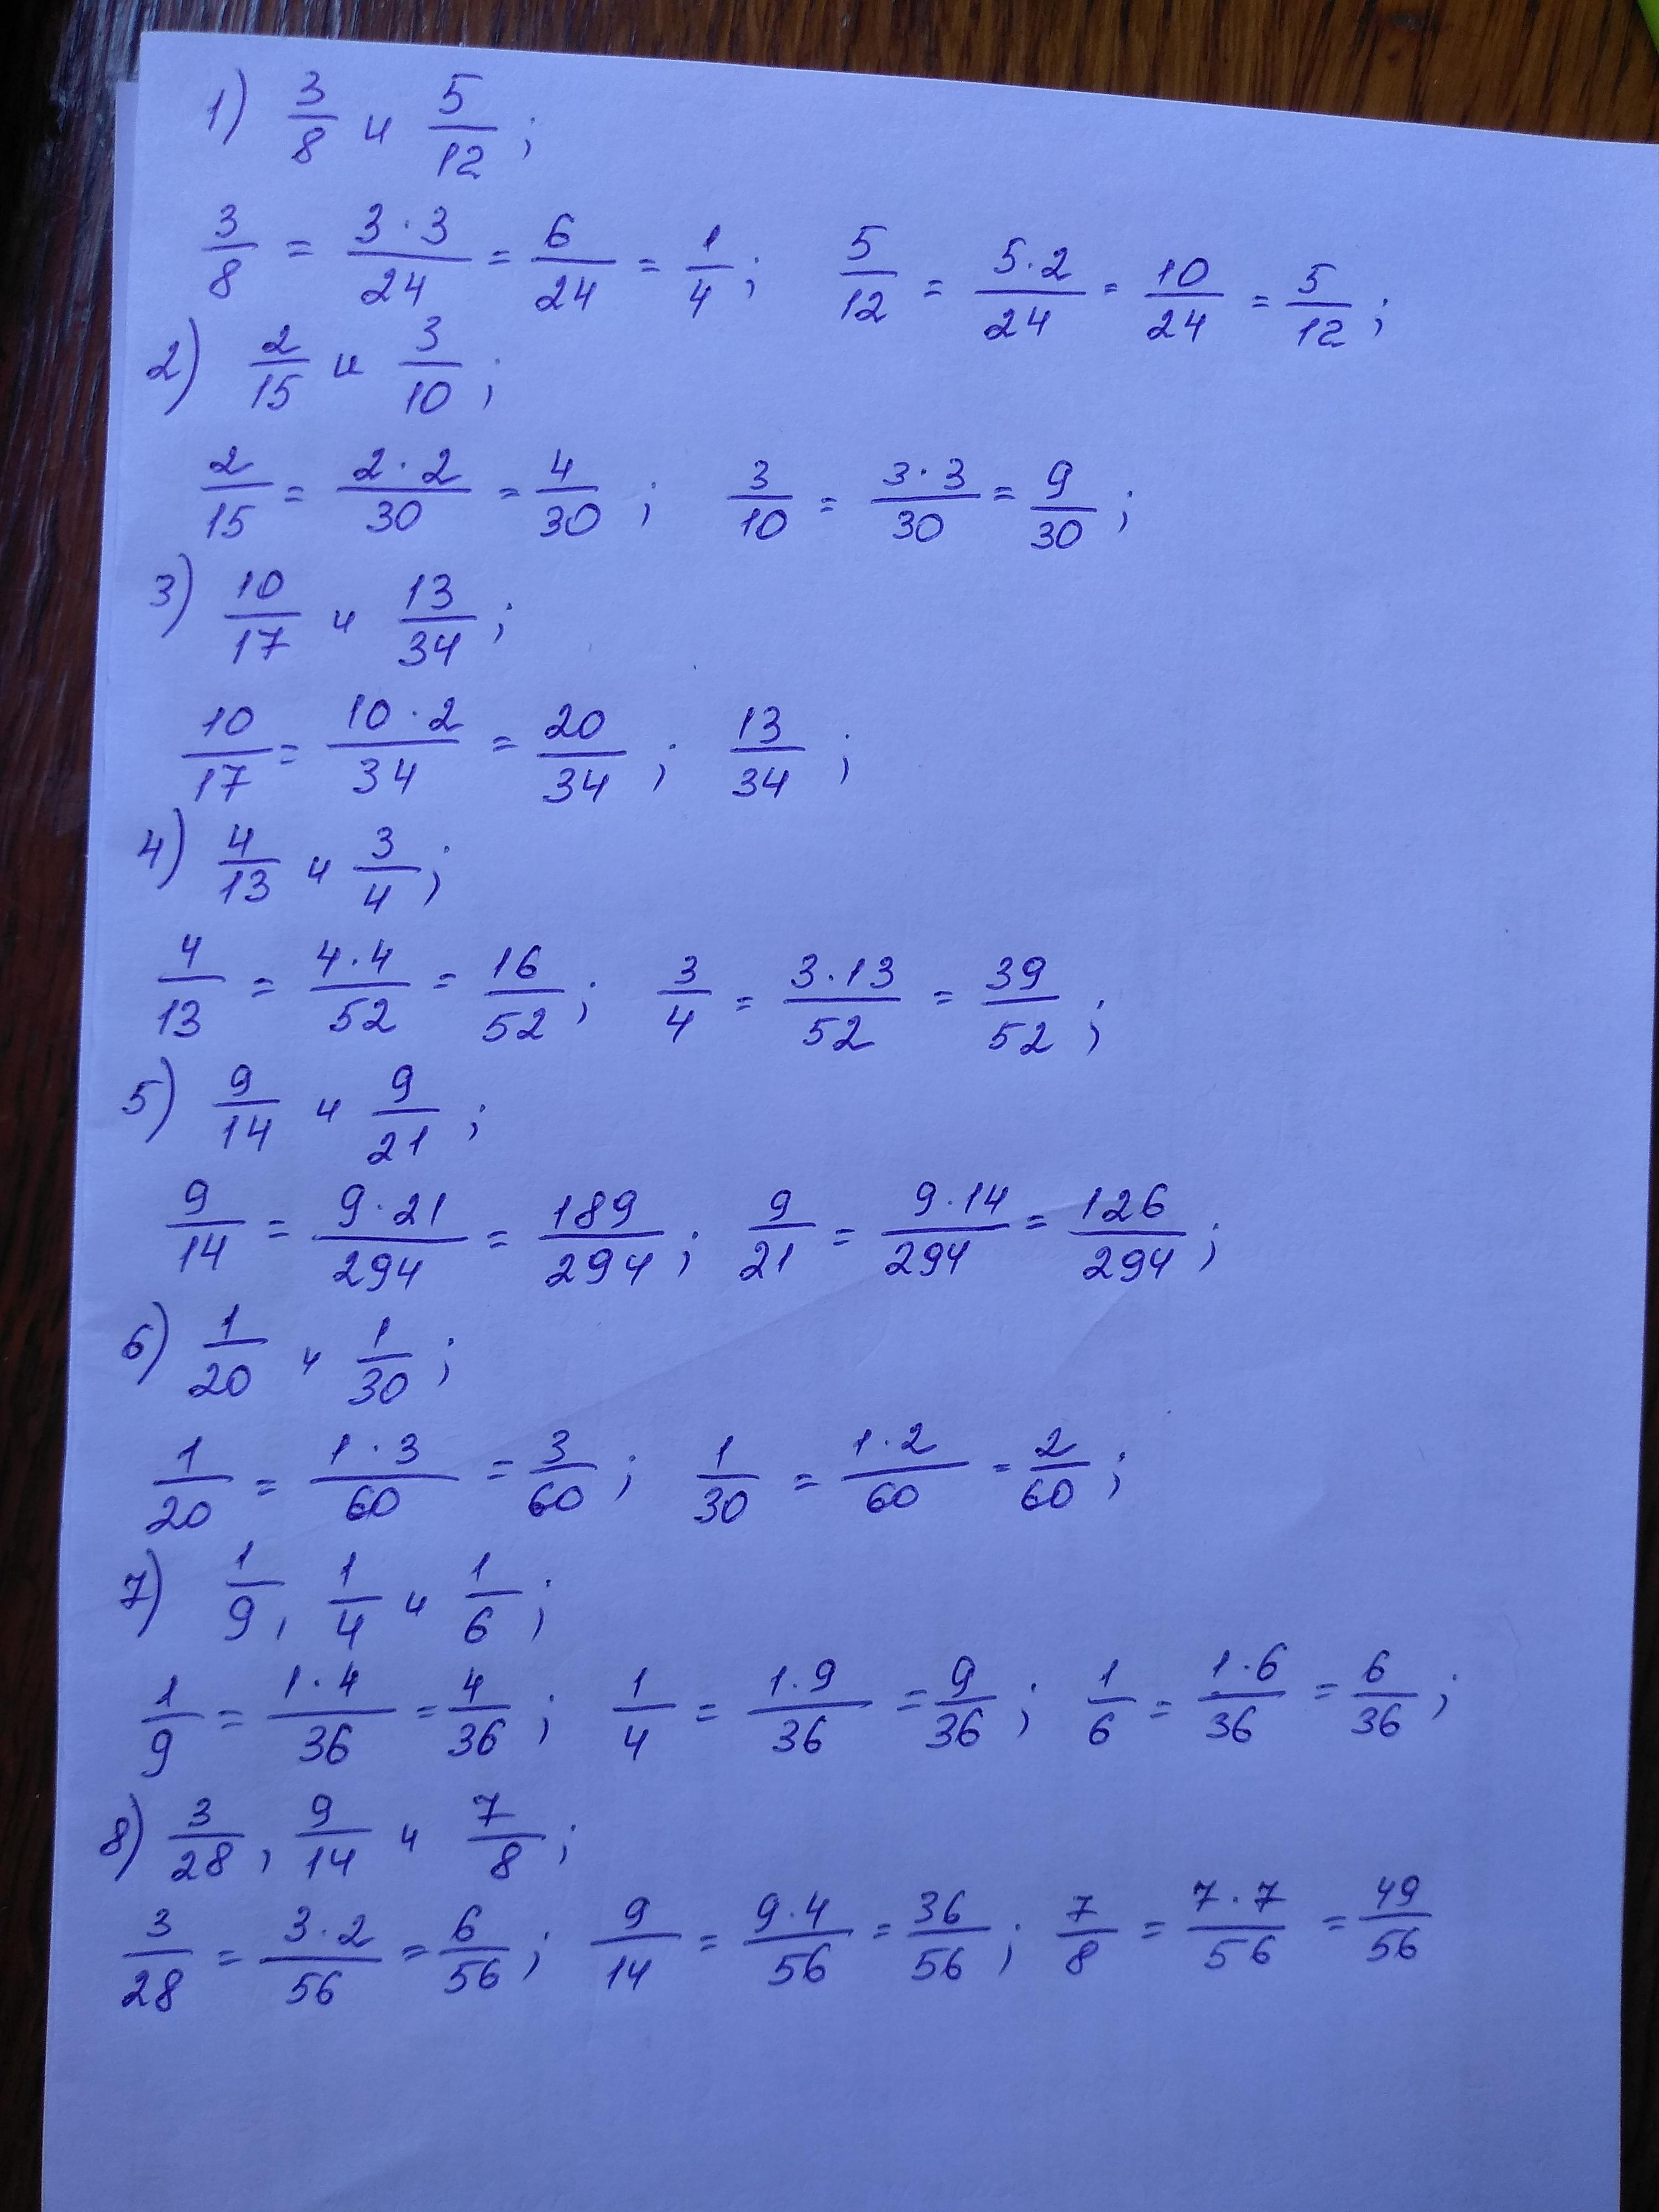 1) 3/8 и 5/12 ;
3/8 = 3·3/24 = 6/24 = 1/4 ; 5/12 = 5·2/24 = 10/24 = 5/12 ;
2) 2/15 и 3/10 ;
2/15 = 2·2/30 = 4/30 ; 3/10 = 3·3/30 = 9/30 ;
3) 10/17 и 13/34 ;
10/17 = 10·2/34 = 20/34 ; 13/34 ;
4) 4/13 и 3/4 ;
4/13 = 4·4/52 = 16/52 ; 3/4 = 3·13/52 = 39/52 ;
5) 9/14 и 9/21 ;
9/14 = 9·21/294 = 189/294 ; 9/21 = 9·14/294 = 126/294 ;
6) 1/20 и 1/30 ;
1/20 = 1·3/60 = 3/60 ; 1/30 = 1·2/60 = 2/60 ;
7) 1/9 , 1/4 и 1/6 ;
1/9 = 1·4/36 = 4/36 ; 1/4 = 1·9/36 = 9/36 ; 1/6 = 1·6/36 = 6/36 ;
8) 3/28 , 9/14 и 7/8 ;
3/28 = 3·2/56 = 6/56 ; 9/14 = 9·4/56 = 36/56 ; 7/8 = 7·7/56 = 49/56